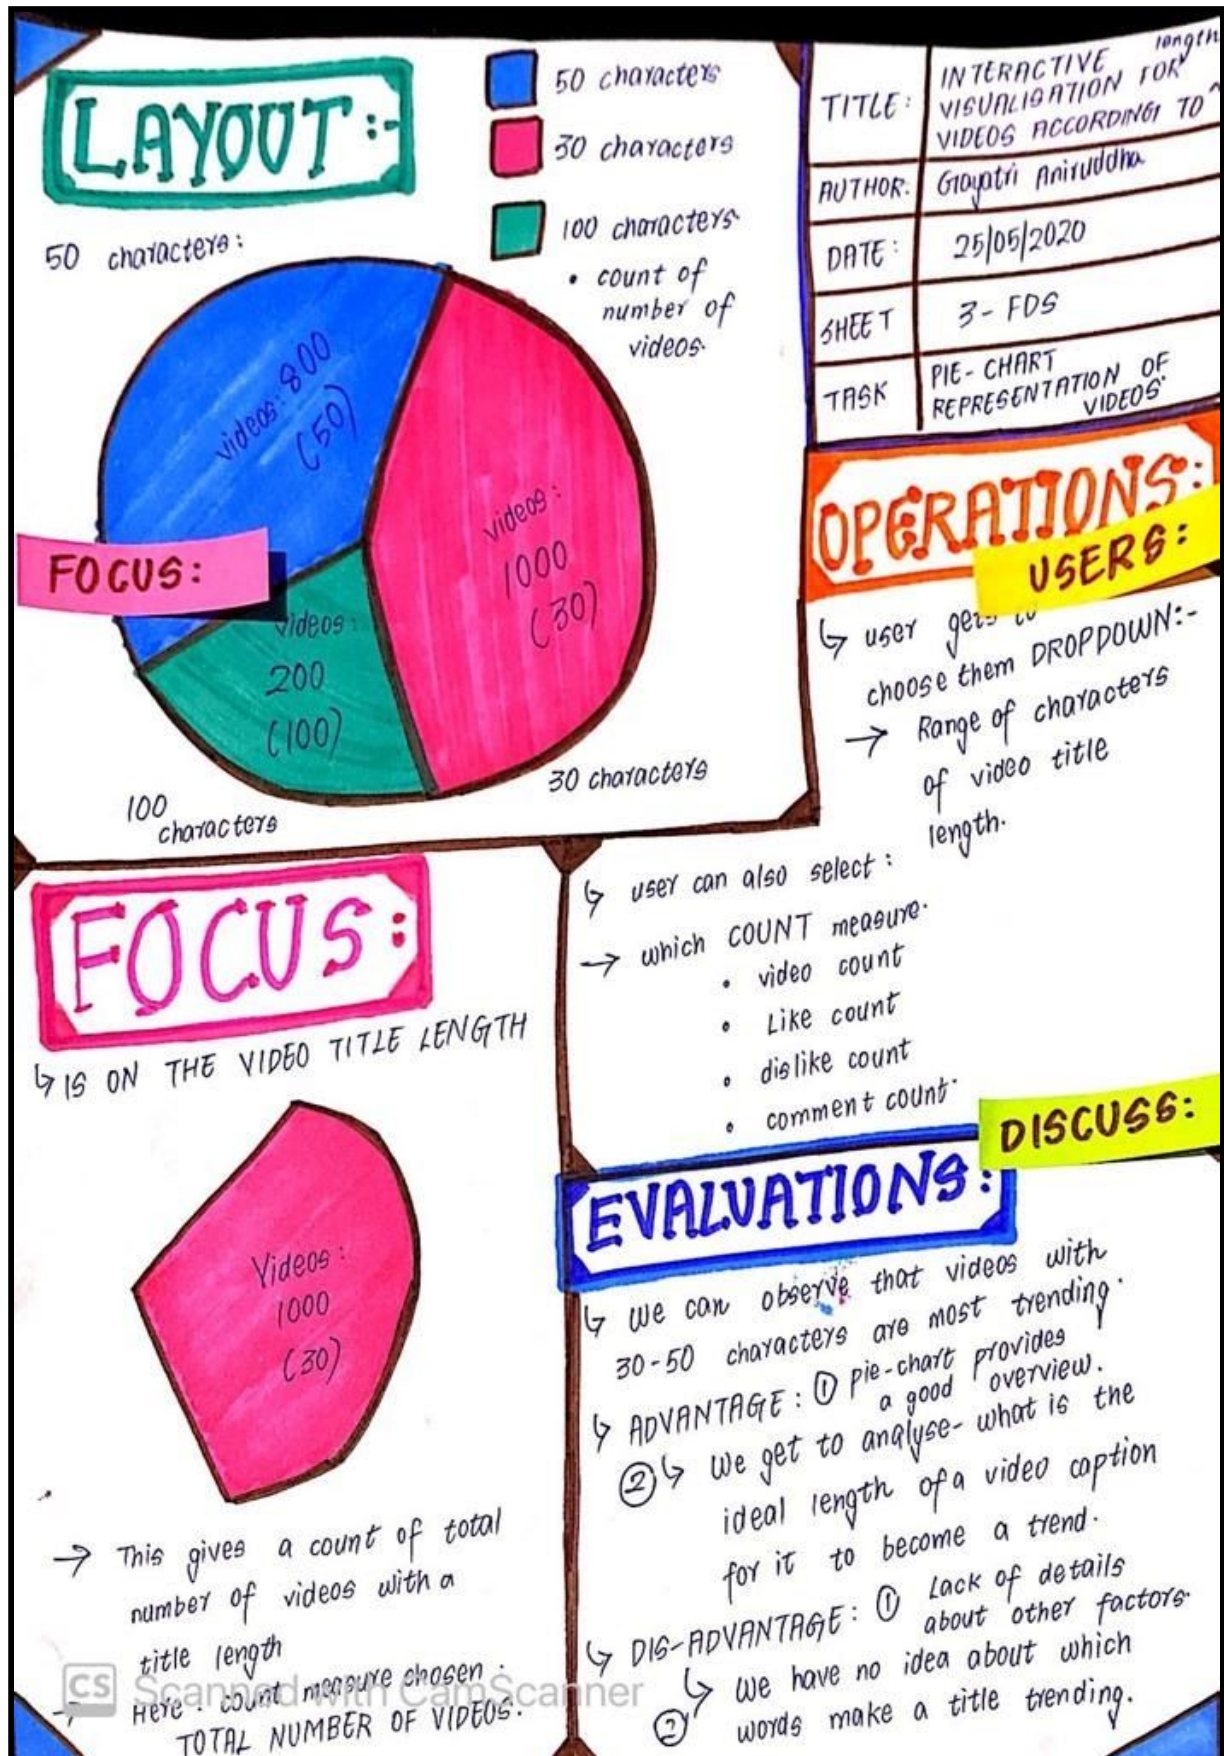 LAYOUT:-
50 characters
30 characters
100 characters
• count of
number of
videos.
50 characters:
videos: 800
(50)
videos:
1000
(30)
FOCUS:
videos:
200
(100)
30 characters
100
characters
TITLE:
INTERACTIVE length
VISUALISATION FOR
VIDEOS ACCORDING TO ^
AUTHOR:
Gayatri Aniruddha
DATE:
25/05/2020
SHEET
3- FDS
TASK
PIE-CHART
REPRESENTATION OF
VIDEOS.
OPERATIONS:
USERS:
↳ user gets to
choose them DROPDOWN:-
→ Range of characters
of video title
length.
↳ user can also select:
→ which COUNT measure.
• video count
• Like count
• dislike count
• comment count.
FOCUS:
↳ IS ON THE VIDEO TITLE LENGTH
Videos:
1000
(30)
→ This gives a count of total
number of videos with a
title length
→ Here: count measure chosen:
TOTAL NUMBER OF VIDEOS.
DISCUSS:
EVALUATIONS:
↳ we can observe that videos with
30-50 characters are most trending.
↳ ADVANTAGE: ① pie-chart provides
a good overview.
② ↳ we get to analyse- what is the
ideal length of a video caption
for it to become a trend.
↳ DIS-ADVANTAGE: ① Lack of details
about other factors.
② ↳ we have no idea about which
words make a title trending.
CS Scanned with CamScanner